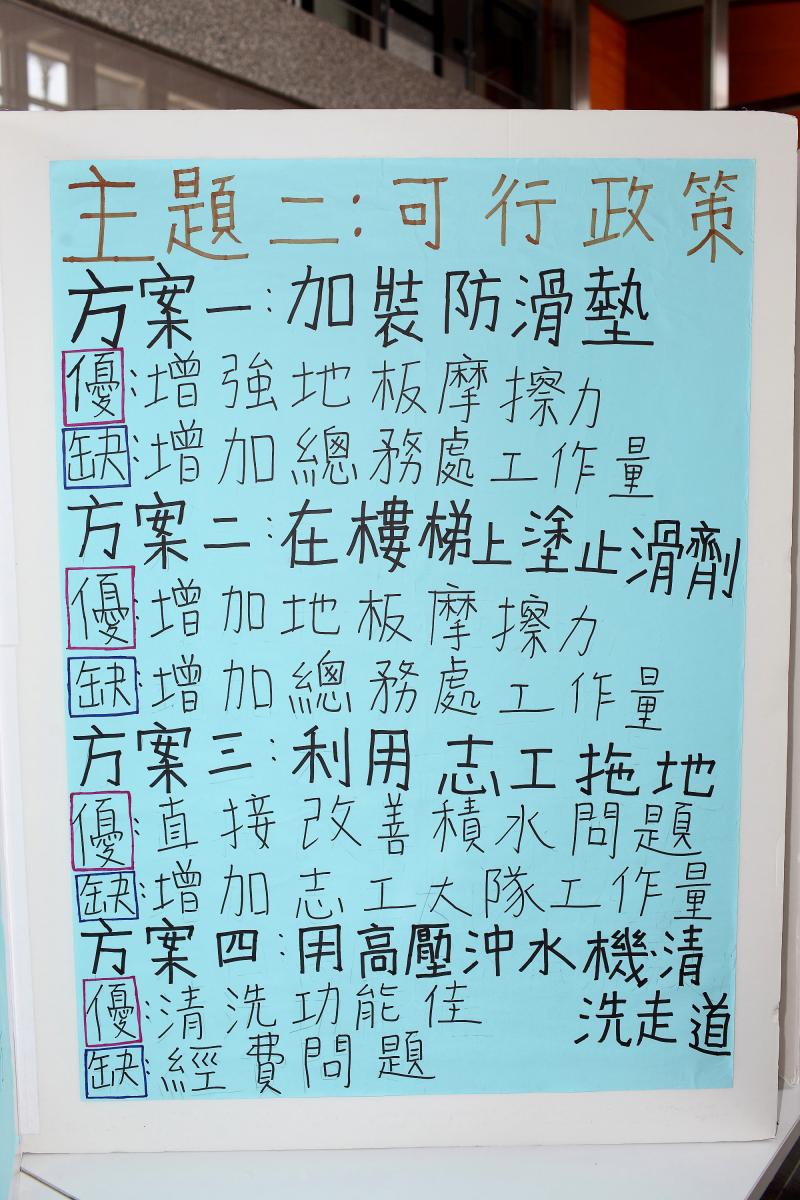 主題二:可行政策
方案一:加裝防滑墊
優:增強地板摩擦力
缺:增加總務處工作量
方案二:在樓梯上塗止滑劑
優:增加地板摩擦力
缺:增加總務處工作量
方案三:利用志工拖地
優:直接改善積水問題
缺:增加志工大隊工作量
方案四:用高壓沖水機清
洗走道
優:清洗功能佳
缺:經費問題